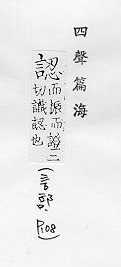 四聲篇海
認而振而證二
切識認也
(言部. P108)